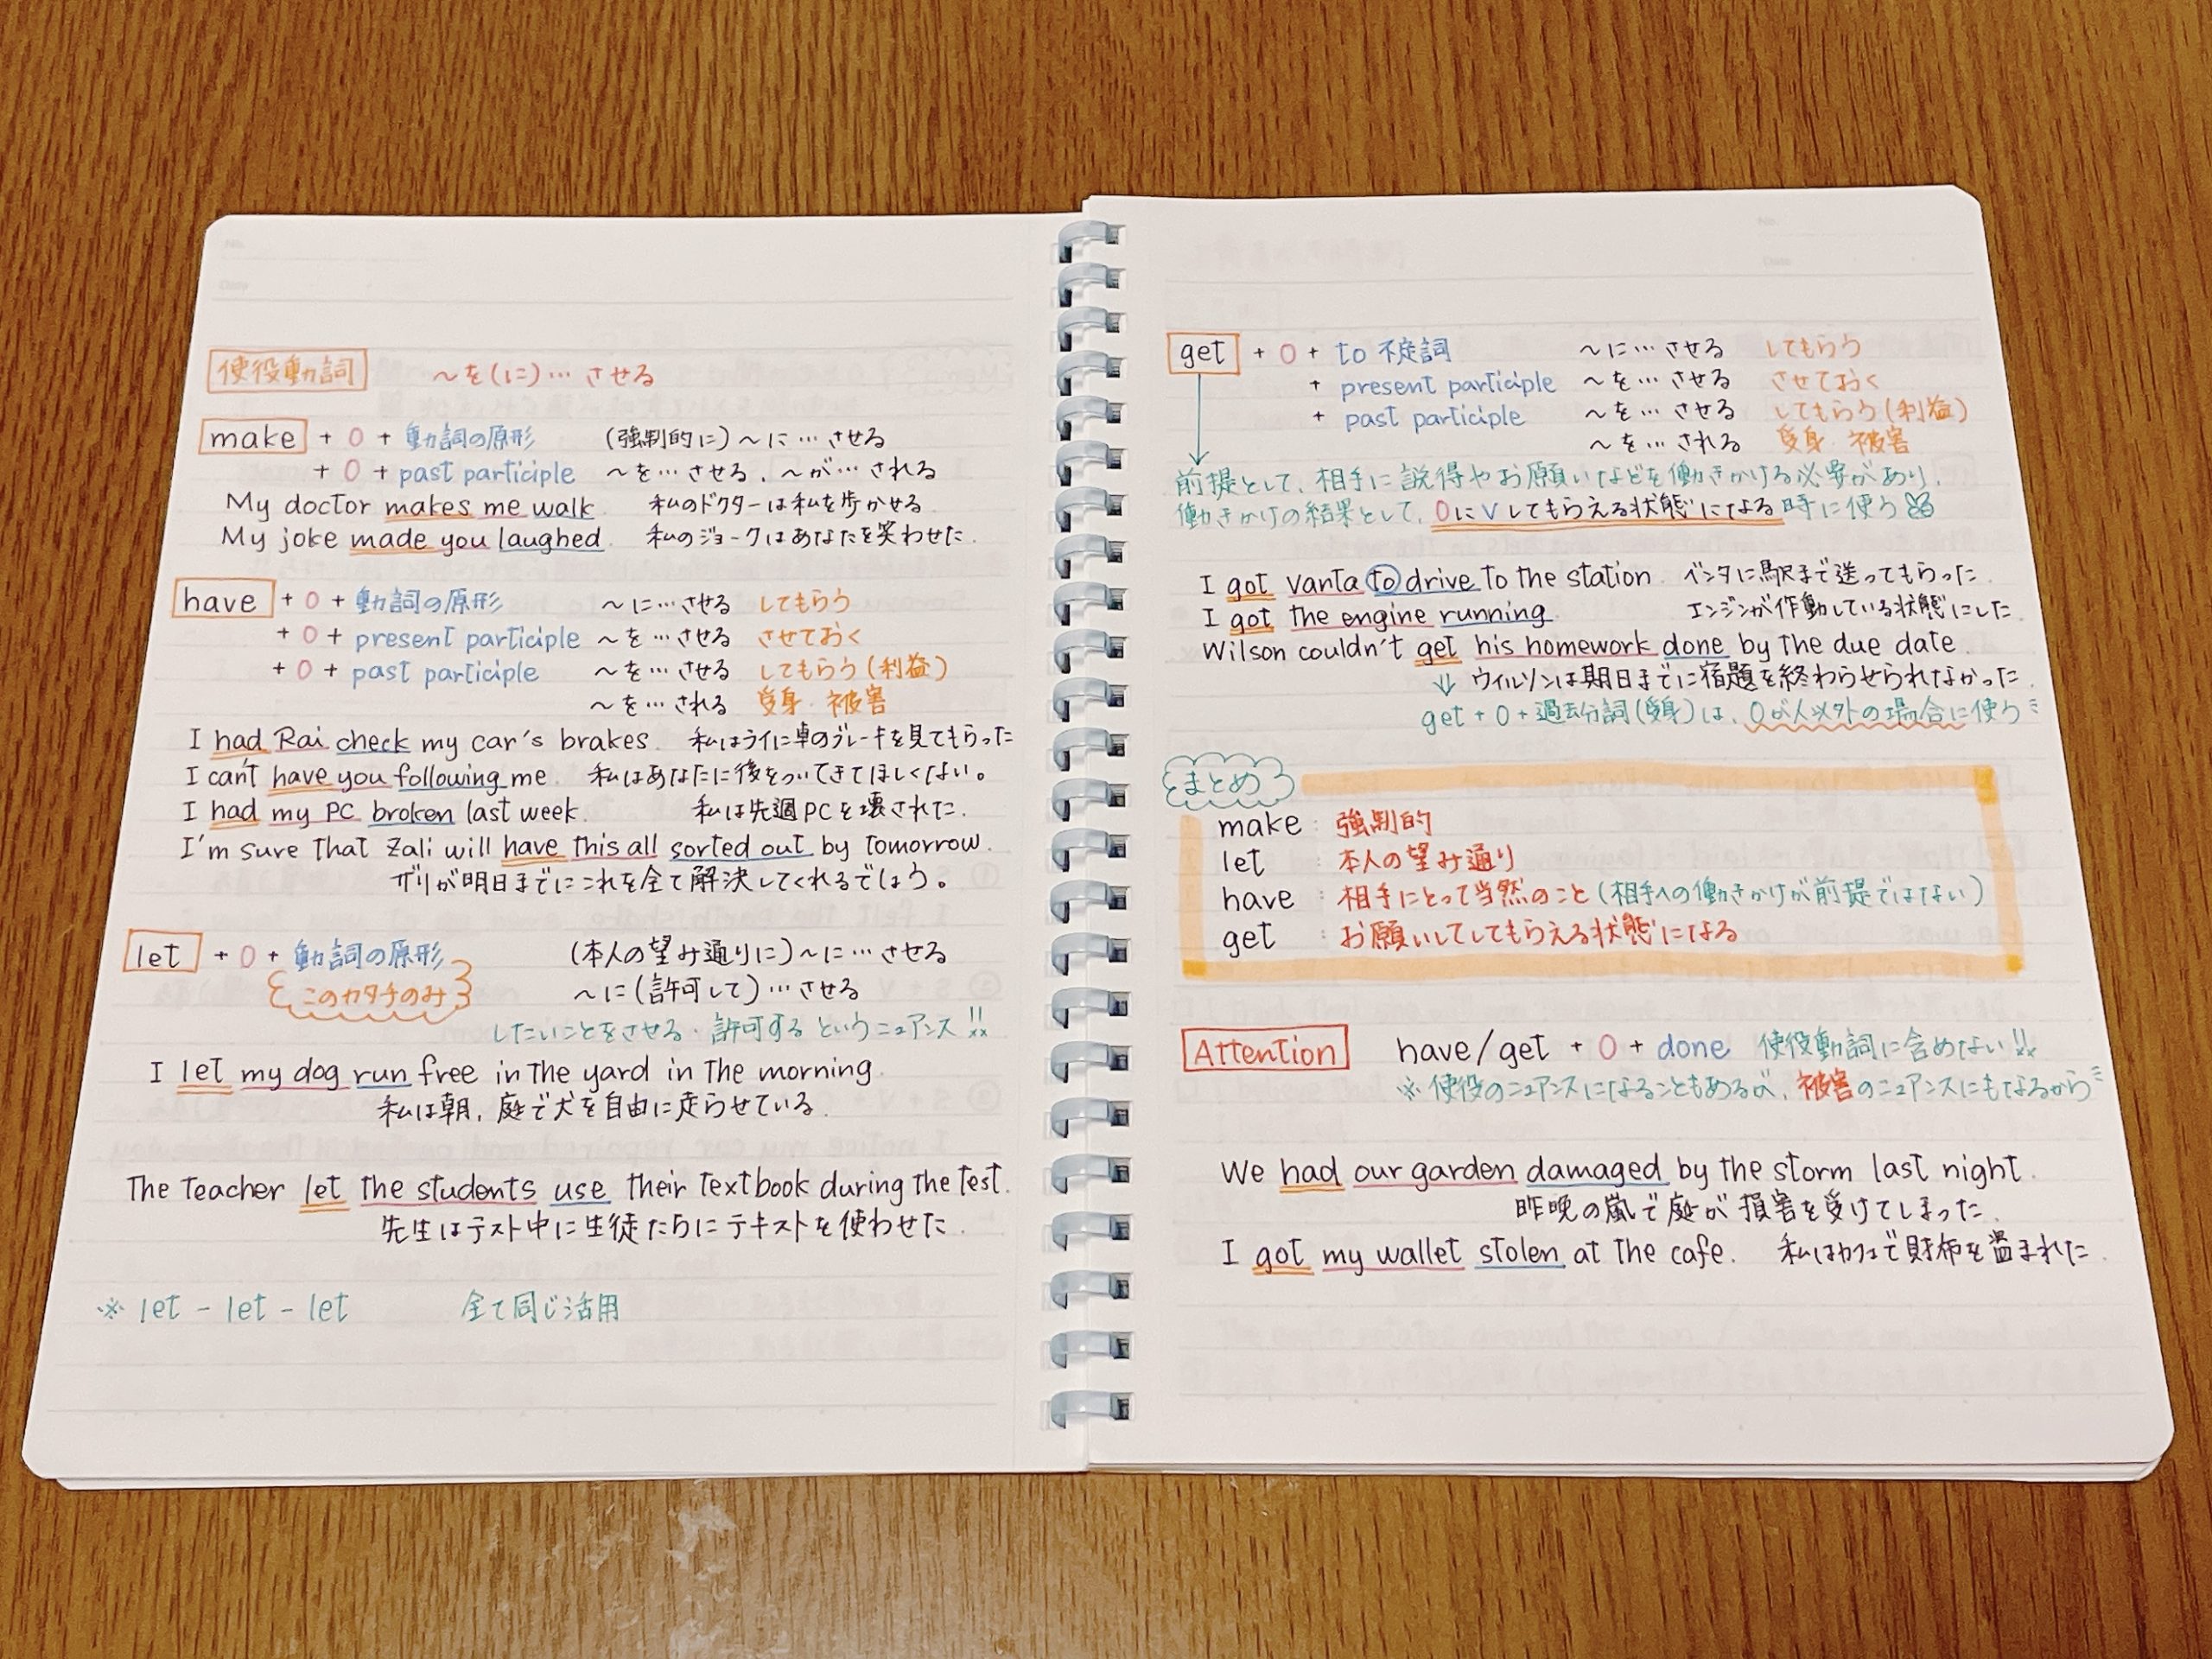 No.
Date
使役動詞 〜を(に)… させる
make + O + 動詞の原形 (強制的に)〜に…させる
+ O + past participle 〜を…させる、〜が…される
My doctor makes me walk. 私のドクターは私を歩かせる.
My joke made you laughed. 私のジョークはあなたを笑わせた.
have + O + 動詞の原形 〜に…させる してもらう
+ O + present participle 〜を…させる させておく
+ O + past participle 〜を…させる してもらう(利益)
〜を…される 受身・被害
I had Rai check my car's brakes. 私はライに車のブレーキを見てもらった
I can't have you following me. 私はあなたに後をついてきてほしくない。
I had my PC broken last week. 私は先週PCを壊された.
I'm sure that Zali will have this all sorted out by tomorrow.
ザリが明日までにこれを全て解決してくれるでしょう。
let + O + 動詞の原形 (本人の望み通りに)〜に…させる
このカタチのみ 〜に(許可して)…させる
したいことをさせる・許可する というニュアンス!!
I let my dog run free in the yard in the morning.
私は朝、庭で犬を自由に走らせている.
The teacher let the students use their textbook during the test.
先生はテスト中に生徒たちにテキストを使わせた.
※ let - let - let 全て同じ活用
No.
Date
get + O + to 不定詞 〜に…させる してもらう
+ present participle 〜を…させる させておく
+ past participle 〜を…させる してもらう(利益)
〜を…される 受身・被害
前提として、相手に説得やお願いなどを働きかける必要があり、
働きかけの結果として、OにVしてもらえる状態になる時に使う
I got vanta to drive to the station. ベンタに駅まで送ってもらった.
I got the engine running. エンジンが作動している状態にした.
Wilson couldn't get his homework done by the due date.
ウィルソンは期日までに宿題を終わらせられなかった.
get + O + 過去分詞(受身)は、Oが人以外の場合に使う
まとめ
make : 強制的
let : 本人の望み通り
have : 相手にとって当然のこと(相手への働きかけが前提ではない)
get : お願いしてしてもらえる状態になる
Attention have/get + O + done 使役動詞に含めない!!
※ 使役のニュアンスになることもあるが、被害のニュアンスにもなるから
We had our garden damaged by the storm last night.
昨晩の嵐で庭が損害を受けてしまった.
I got my wallet stolen at the cafe. 私はカフェで財布を盗まれた.